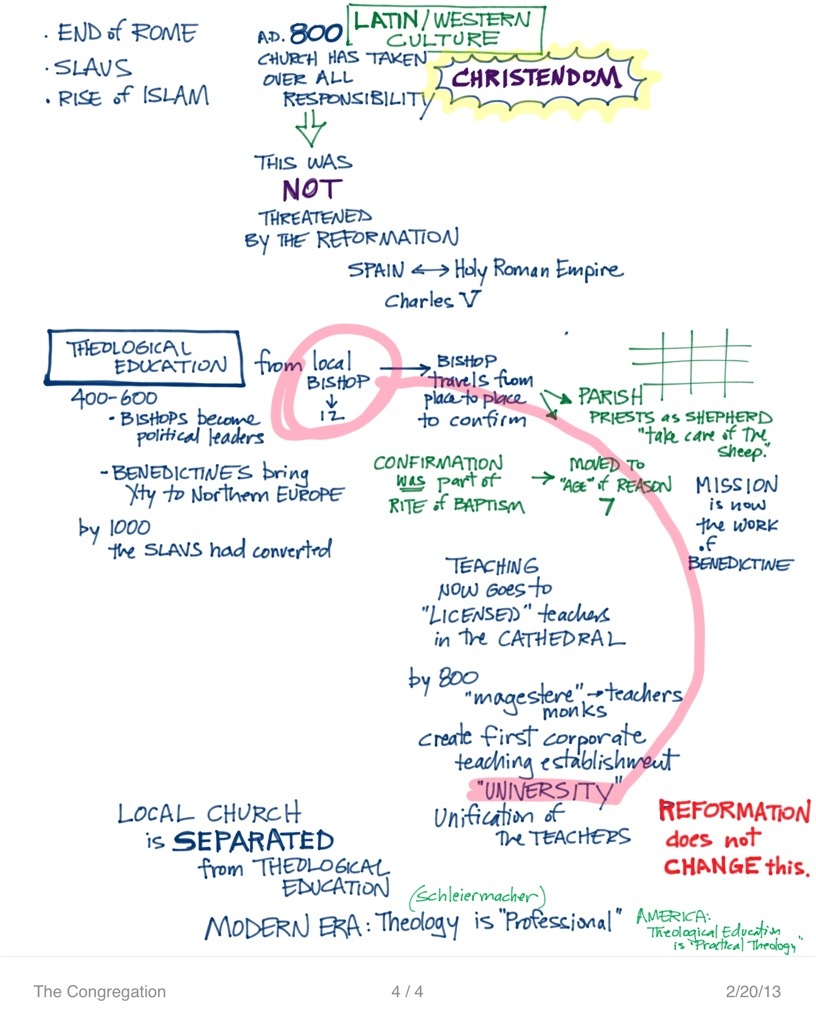 • END of ROME
• SLAVS
• RISE of ISLAM
A.D. 800
LATIN/WESTERN
CULTURE
CHURCH HAS TAKEN
OVER ALL
RESPONSIBILITY
CHRISTENDOM
THIS WAS
NOT
THREATENED
BY THE REFORMATION
SPAIN ↔ Holy Roman Empire
Charles V
THEOLOGICAL
EDUCATION
from local
BISHOP
↓
12
→ BISHOP
travels from
place to place
to confirm
PARISH
PRIESTS as SHEPHERD
"take care of The
sheep."
400-600
• BISHOPS become
political leaders
- BENEDICTINES bring
Xty to Northern EUROPE
by 1000
the SLAVS had converted
CONFIRMATION
WAS part of
RITE of BAPTISM
→ MOVED TO
"AGE" of REASON
7
MISSION
is now
the WORK
of
BENEDICTINE
TEACHING
NOW GOES to
"LICENSED" teachers
in the CATHEDRAL
by 800
"magestere" → teachers
monks
create first corporate
teaching establishment
"UNIVERSITY"
Unification of
The TEACHERS
LOCAL CHURCH
is SEPARATED
from THEOLOGICAL
EDUCATION
REFORMATION
does not
CHANGE this.
(Schleiermacher)
MODERN ERA: Theology is "Professional"
AMERICA:
Theological Education
is "Practical Theology"
The Congregation
4 / 4
2/20/13